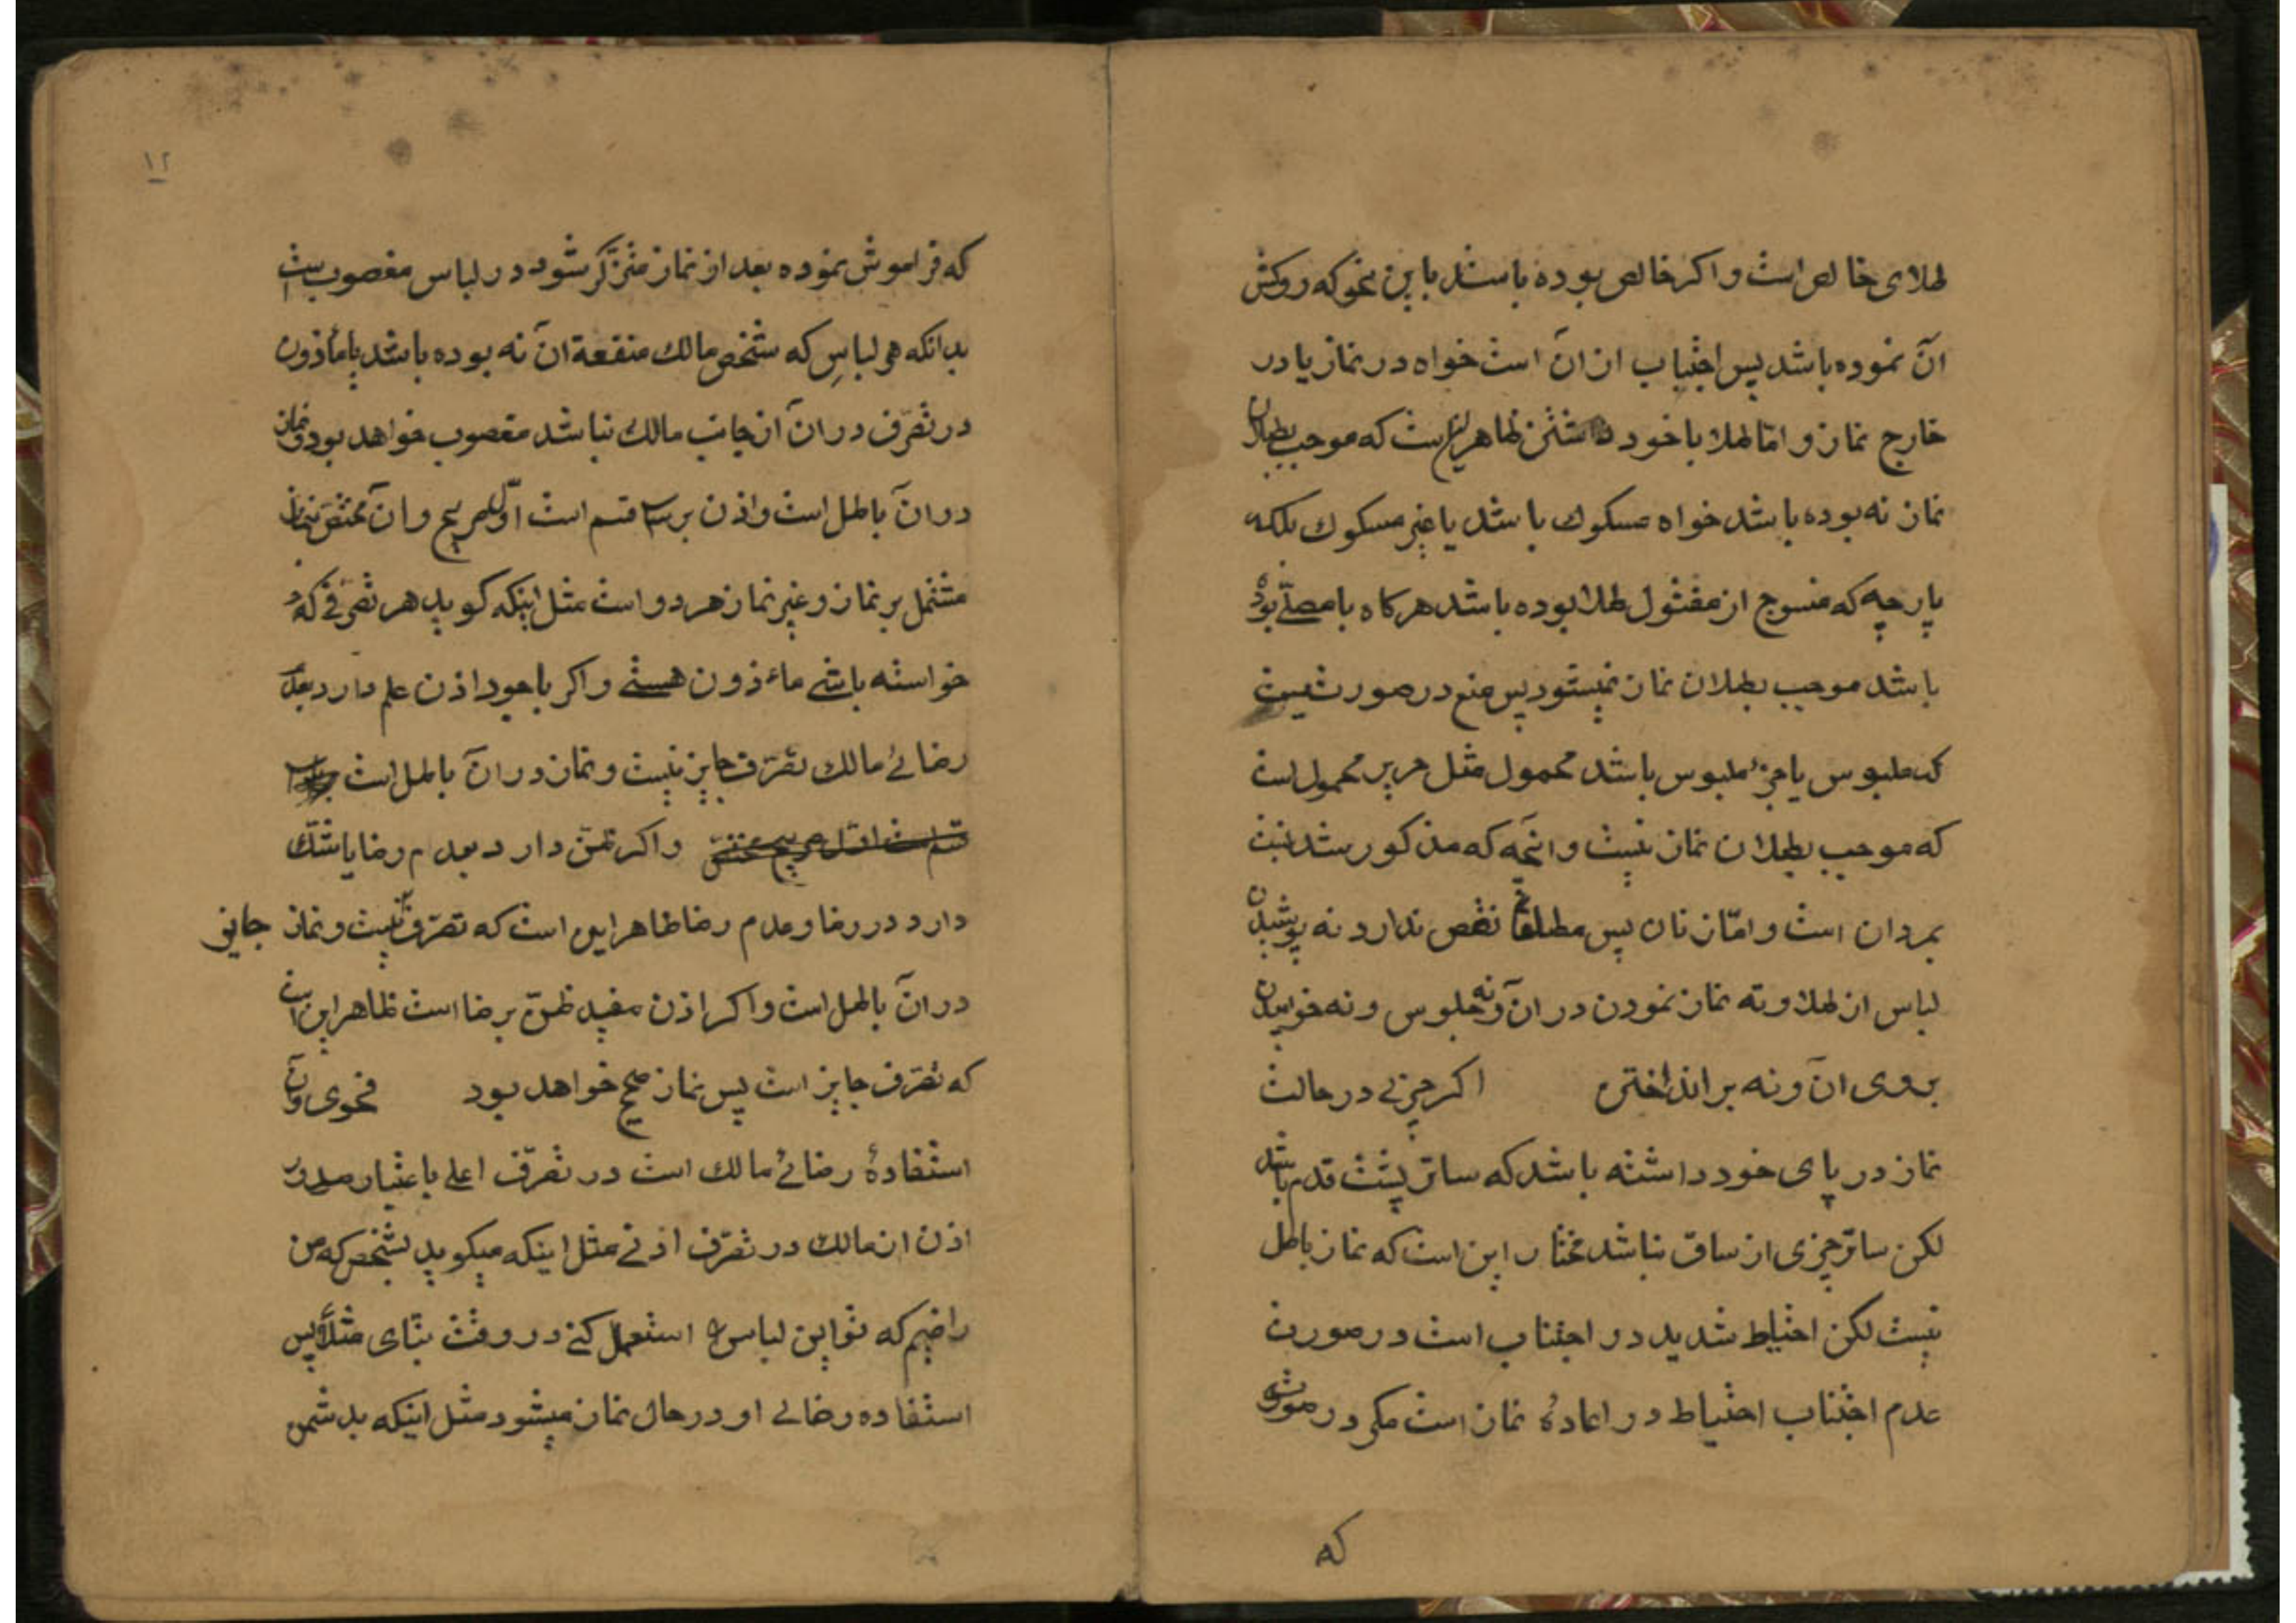 طلای خالص است و اکر خالص بوده باشد باین نحو که روکش
آن نموده باشد پس اجتناب از آن است خواه در نماز یا در
خارج نماز و امّا طلا با خود داشتن ظاهر این است که موجب بطلان
نماز نه بوده باشد خواه مسکوك باشد یا غیر مسکوك بلکه
پارچه که منسوج از مفتول طلا بوده باشد هر کاه با مصلّے بوده
باشد موجب بطلان نماز نمیشود پس منع در صورتیست
که ملبوس یا جزء ملبوس باشد محمول مثل حریر محمول است
که موجب بطلان نماز نیست و آنچه که مذکور شد نسبت
بمردان است و امّا زنان پس مطلقا نقص ندارد نه پوشیدن
لباس از طلا و نه نماز نمودن در آن و نه جلوس و نه خوابیدن
بروی آن و نه بر انداختن اکر چیزی در حالت
نماز در پای خود داشته باشد که ساتر پشت قدم باشد
لکن ساتر چیزی از ساق نباشد مختار این است که نماز باطل
نیست لکن احتیاط شدید در اجتناب است در صورت
عدم اجتناب احتیاط در اعادهٔ نماز است مکر در صورتی
که
۱۲
که فراموش نموده بعد از نماز متذکّر شود در لباس مغصوب است
بدانکه هر لباس که شخص مالك منفعة آن نه بوده باشد یا مأذون
در تصرّف در آن از جانب مالك نباشد مغصوب خواهد بود و نماز
در آن باطل است و اذن بر سه قسم است اوّل صریح و آن مختصّ بنماز
مشتمل بر نماز و غیر نماز هر دو است مثل اینکه کوید هر تصرّفی که
خواسته باشے ماءذون هستے و اکر باوجود اذن علم دارد بعدم
رضائے مالك تصرّف جایز نیست و نماز در آن باطل است
قسم است اوّل صریح مختصّ و اکر ظنّ دارد بعدم رضا یا شكّ
دارد در رضا و عدم رضا ظاهر این است که تصرّف نیست و نماز جایز
در آن باطل است و اکر اذن مفید ظنّ برضا است ظاهر این است
که تصرّف جایز است پس نماز صحیح خواهد بود فحوی و آن
استفادهٔ رضائے مالك است در تصرّف اعلی باعتبار صدور
اذن از مالك در تصرّف ادنے مثل اینکه میکوید بشخص که من
راضیم که تو این لباس را استعمال کنے در وقت بنّای مثلاً پس
استفاده رضائے او در حال نماز میشود مثل اینکه بدشمن